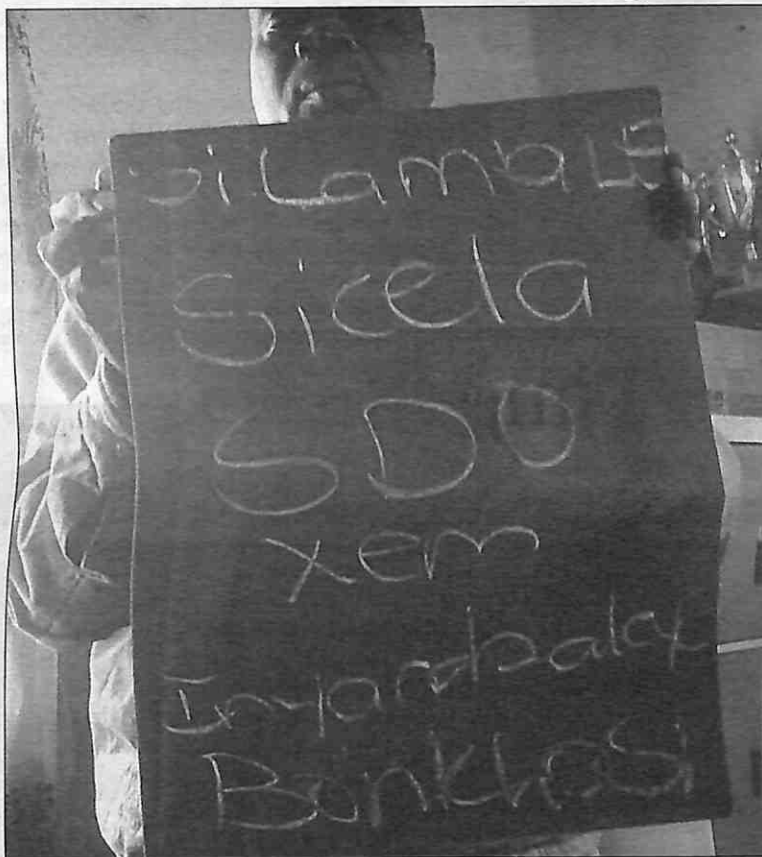 SiLambLE
Sicela
SDO
xem
Inyanbalax
BankhoSi